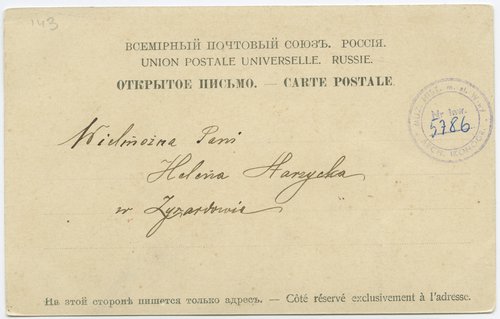 143
ВСЕМІРНЫЙ ПОЧТОВЫЙ СОЮЗЪ. РОССІЯ.
UNION POSTALE UNIVERSELLE. RUSSIE.
ОТКРЫТОЕ ПИСЬМО. — CARTE POSTALE.
Nr inw.
5786
Wielmożna Pani
Helena Narzycka
w Żyrardowie
На этой сторонѣ пишется только адресъ. — Côté réservé exclusivement à l'adresse.